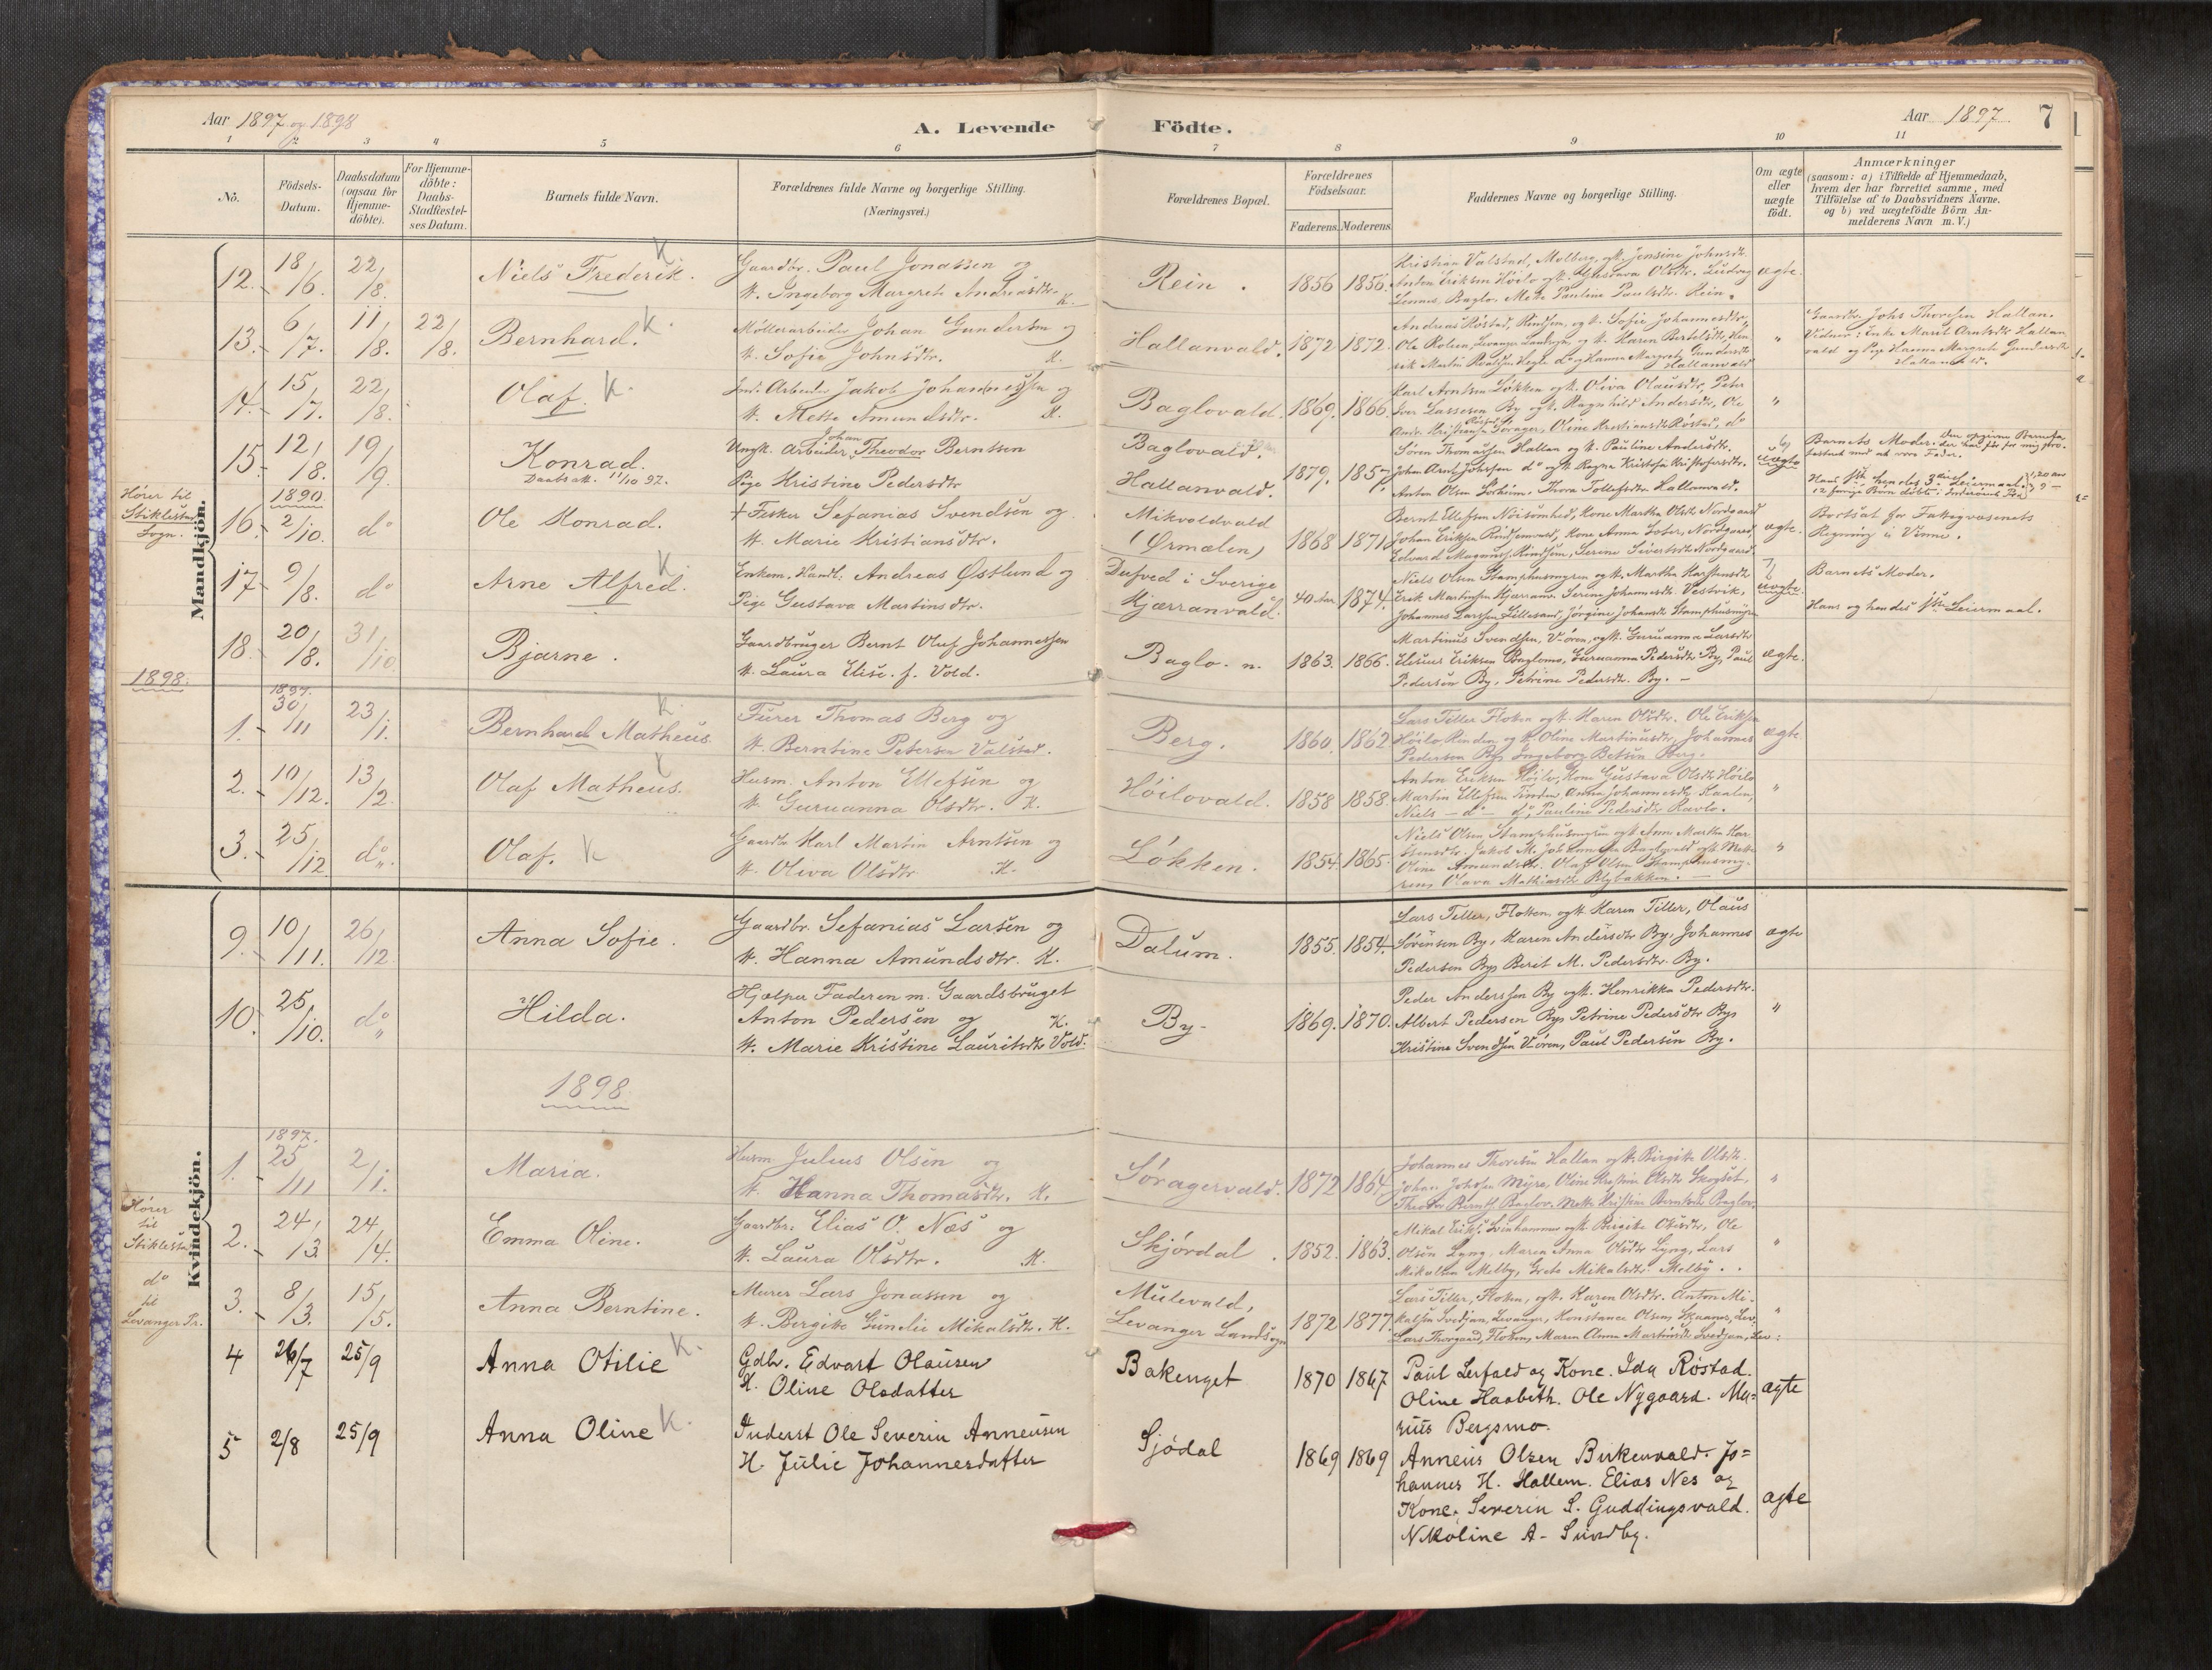 Aar 1897 og 1898
A. Levende Födte.
Aar 1897. 7
1 2 3 4 5 6 7 8 9 10 11
No.
Födsels-
Datum.
Daabsdatum
(ogsaa for
Hjemme-
döbte).
For Hjemme-
döbte:
Daabs-
Stadfæstel-
ses Datum.
Barnets fulde Navn.
Forældrenes fulde Navne og borgerlige Stilling.
(Næringsvei.)
Forældrenes Bopæl.
Forældrenes
Födselsaar.
Faderens. Moderens.
Faddernes Navne og borgerlige Stilling.
Om ægte
eller
uægte
födt.
Anmærkninger
(saasom: a) i Tilfælde af Hjemmedaab,
hvem der har forrettet samme, med
Tilföielse af to Daabsvidners Navne.
og b) ved uægtefödte Börn An-
melderens Navn m. V.)
Mandkjön.
12. 18/6. 22/8. Niels Frederik. K
Gaardbr. Paul Jonassen og
K. Ingeborg Margrete Andreasdtr. K.
Rein. 1856 1856.
Kristian Valstad, Molberg, og K. Jensine Johnsdtr.
Anton Eriksen Høilo og K. Gustava Olsdtr. Ludvig
Baglo. Mette Pauline Paulsdtr. Rein.
ægte.
13. 6/7. 11/8. 22/8. Bernhard. K.
Møllerarbeider Johan Gundersen og
K. Sofie Johnsdtr. K.
Hallanvald. 1872 1872.
Andreas Røstad, Rindsem, og K. Sofie Johannesdtr,
Ole Levanger Landsogn og K. Karen Bertelsdtr, Hen
rik Martin Hegle do, Hanna Margrete Gundersdtr
Hallanvald
"
Gaardbr. Johs Thoresen Hallan.
Vidner: Enke Marit Arntsdtr Hallan
vald og Pige Hanna Margrete Gundersdtr
Hallanvald.
14. 15/7. 22/8. Olaf. K.
Ind. Arbeider Jakob Johannessen og
K. Mette Amundsdtr. K.
Baglovald. 1869. 1866.
Karl Arntsen Løkken og K. Oliva Olausdtr, Peter
Iver Lassesen By og K. Ragnhild Andersdtr, Ole
Andr. Kristiansen Sørager, Oline Kristiansdtr Røstad, do
"
15. 12/8. 19/9. Konrad.
Daabsatt. 11/10 97.
Ungk. Arbeider Johan Theodor Berntsen
Pige Kristine Pedersdtr
Baglovald.
Hallanvald.
1879. 1857.
Søren Thomassen Hallan og K. Pauline Andersdtr.
Johan Arnt Johnsen do og K. Ragna Kristofa Kristofersdtr.
Anton Olsen Solheim, Thora Tollefsdtr. Hallanvald.
6) uægte
Barnets Moder. Den opgivne Barnefa
der har før for mig pro-
testeret mod at være Fader.
Hans 1ste hendes 3die Leiermaal.
16. 1890. 2/10. do Ole Konrad.
† Fisker Sefanias Svendsen og
K. Marie Kristiansdtr.
Mikvoldvald
(Ørmælen)
1868 1871.
Bernt Ellefsen Nøisomhed, Kone Martha Olsdtr Nordgaard
Johan Eriksen Rindsemvald, Kone Anna Sofie, Nordgaard,
Edvard Magnus, Rindsem, Serine Sivertsdtr Nordgaard
ægte.
Bortsat for Fattigvæsenets
Regning i Vinne.
Hører til
Stiklestad
Sogn.
17. 9/8. do Arne Alfred. K
Enkem. Handl. Andreas Østlund og
Pige Gustava Martinsdtr.
Dufved i Sverige
Kjærranvald.
40 Aar 1874.
Niels Olsen Stamphusmyren og K. Martha Karstensdtr
Erik Martinsen Kjærran. Serine Johannesdtr. Vestvik,
Johannes Larssen Lillesand, Jørgine Johansdtr Stamphusmyren
7) uægte.
Barnets Moder.
Hans og hendes 1ste Leiermaal.
18. 20/8. 31/10. Bjarne.
Gaardbruger Bernt Olaf Johannessen
K. Laura Elise. f. Vold.
Baglo. n. 1863. 1866.
Martinus Svendsen, Vøren, og K. Guruanna Larsdtr
Elenus Eriksen Baglomo, Guruanna Pedersdtr By, Paul
Pedersen By, Petrine Pedersdtr. By. —
ægte.
1898.
1. 1897. 30/11 23/1. Bernhard Matheus. K.
Furer Thomas Berg og
K. Berntine Petersen Valstad.
Berg. 1860. 1862
Lars Tiller Floken og K. Karen Olsdtr. Ole Eriksen
Høilo, Rinden og K. Oline Martinusdtr, Johannes
Pedersen By, Ingeborg Betsin Berg.
ægte
2. 10/12. 13/2. Olaf Matheus. K
Husm. Anton Ellefsen og
K. Guruanna Olsdtr. K.
Høilovald. 1858 1858.
Anton Eriksen Høilo, Kone Gustava Olsdtr Høilo
Martin Ellefsen Tinden, Anna Johannesdtr Kaalen,
Niels – do – do, Pauline Pedersdtr Ravlo.
"
3. 25/12 do. Olaf. K
Gaardbr Karl Martin Arntsen og
K. Oliva Olsdtr K.
Løkken. 1854. 1865.
Niels Olsen Stamphusmyren og K Anne Martha Kar
stensdtr. Jakob M. Johannessen Baglovald og K. Mette
Oline Amundsdtr. Olaf Olsen Stamphusmy-
ren, Olava Mathiasdtr Rybakken. —
"
Kvindekjön.
9. 10/11. 26/12 Anna Sofie.
Gaardbr. Sefanias Larsen og
K. Hanna Amundsdtr. K.
Dalum. 1855. 1854.
Lars Tiller, Floken, og K Karen Tiller, Olaus
Sørensen By, Karen Andersdtr By, Johannes
Pedersen By, Berit M. Pedersdtr. By.
ægte
10. 25/10. do Hilda.
Hjælper Faderen m. Gaardsbruget
Anton Pedersen og K.
K. Marie Kristine Lauritsdtr Vold.
By. 1869. 1870.
Peder Anderssen By og K. Henrikka Pedersdtr.
Albert Pedersen By, Petrine Pedersdtr By,
Kristine Svendsen Vøren, Paul Pedersen By.
"
1898
1. 1897. 25/11 2/1. Maria.
Husm Julius Olsen og
K. Hanna Thomasdtr. K.
Søragervald. 1872 1864
Johannes Thoresen Hallan og K. Birgitte Olsdtr.
Johan Johnsen Myre, Oline Kristine Olsdtr Skogset,
Theodor Berntsen Baglov. Mette Kristine Berntsdtr Baglov.
"
Hører
til
Stiklestad
2. 24/3 24/4. Emma Oline.
Gaardbr. Elias O. Næs og
K. Laura Olsdtr. K.
Skjørdal. 1852. 1863.
Mikal Eriks. Leinhammer og K. Birgitte Olsdtr, Ole
Olsen Lyng, Maren Anna Olsdtr Lyng, Lars
Mikalsen Melby, Grete Mikalsdtr Melby.
"
do
til
Levanger Pr.
3. 8/3. 15/5. Anna Berntine.
Murer Lars Jonassen og
K. Bergitte Gunelie Mikalsdtr. K.
Mulevald,
Levanger Landsogn
1872 1877.
Lars Tiller, Floken, og K. Karen Olsdtr. Anton Mi-
kalsen Svedjan, Levanger, Konstance Olsen, Skaanes, Lev.
Lars Thorgaard, Floken, Maren Anna Martinsdtr Svedjan, Lev:
"
4 26/7 25/9 Anna Otilie K.
Gdbr. Edvart Olausen
K. Oline Olsdatter
Bakenget 1870 1867
Paul Lerfald og Kone. Ida Røstad.
Oline Haabeth. Ole Nygaard. Ma-
rius Bergsmo.
ægte
5 2/8 25/9 Anna Oline K.
Inderst Ole Severin Anneusen
H. Julie Johannesdatter
Sjødal 1869 1869
Anneus Olsen Birkenvald. Jo=
hannes H. Hallem. Elias Nes og
Kone. Severin S. Guddingsvald.
Nikoline A- Sundby.
ægte